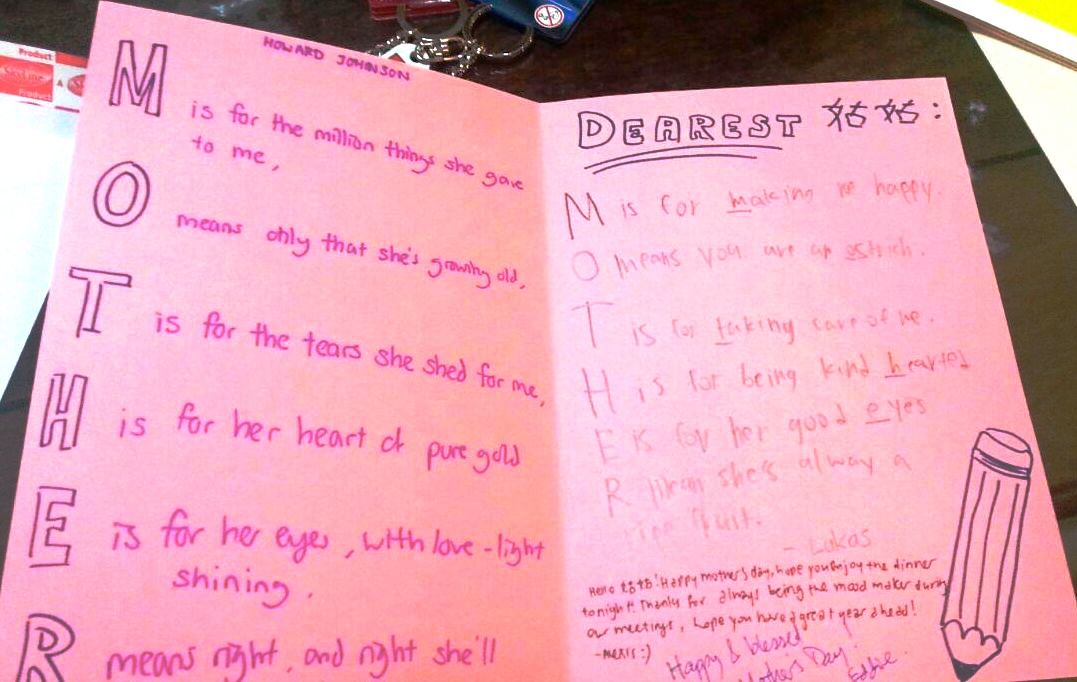 Product
Product
HOWARD JOHNSON
M is for the million things she gave
to me,
O means only that she's growing old,
T is for the tears she shed for me,
H is for her heart of pure gold
E is for her eyes, with love-light
shining,
R means right, and right she'll
DEAREST 姑姑:
M is for making me happy.
O means you are an ostrich.
T is for taking care of me.
H is for being kind hearted
E is for her good eyes
R Mean she's alway a
ripe fruit.
- Lukas
Hello 姑姑! Happy mother's day, hope you enjoy the dinner
tonight! Thanks for always being the mood maker during
our meetings, hope you have a great year ahead!
:)
Happy & blessed
Mothers Day!